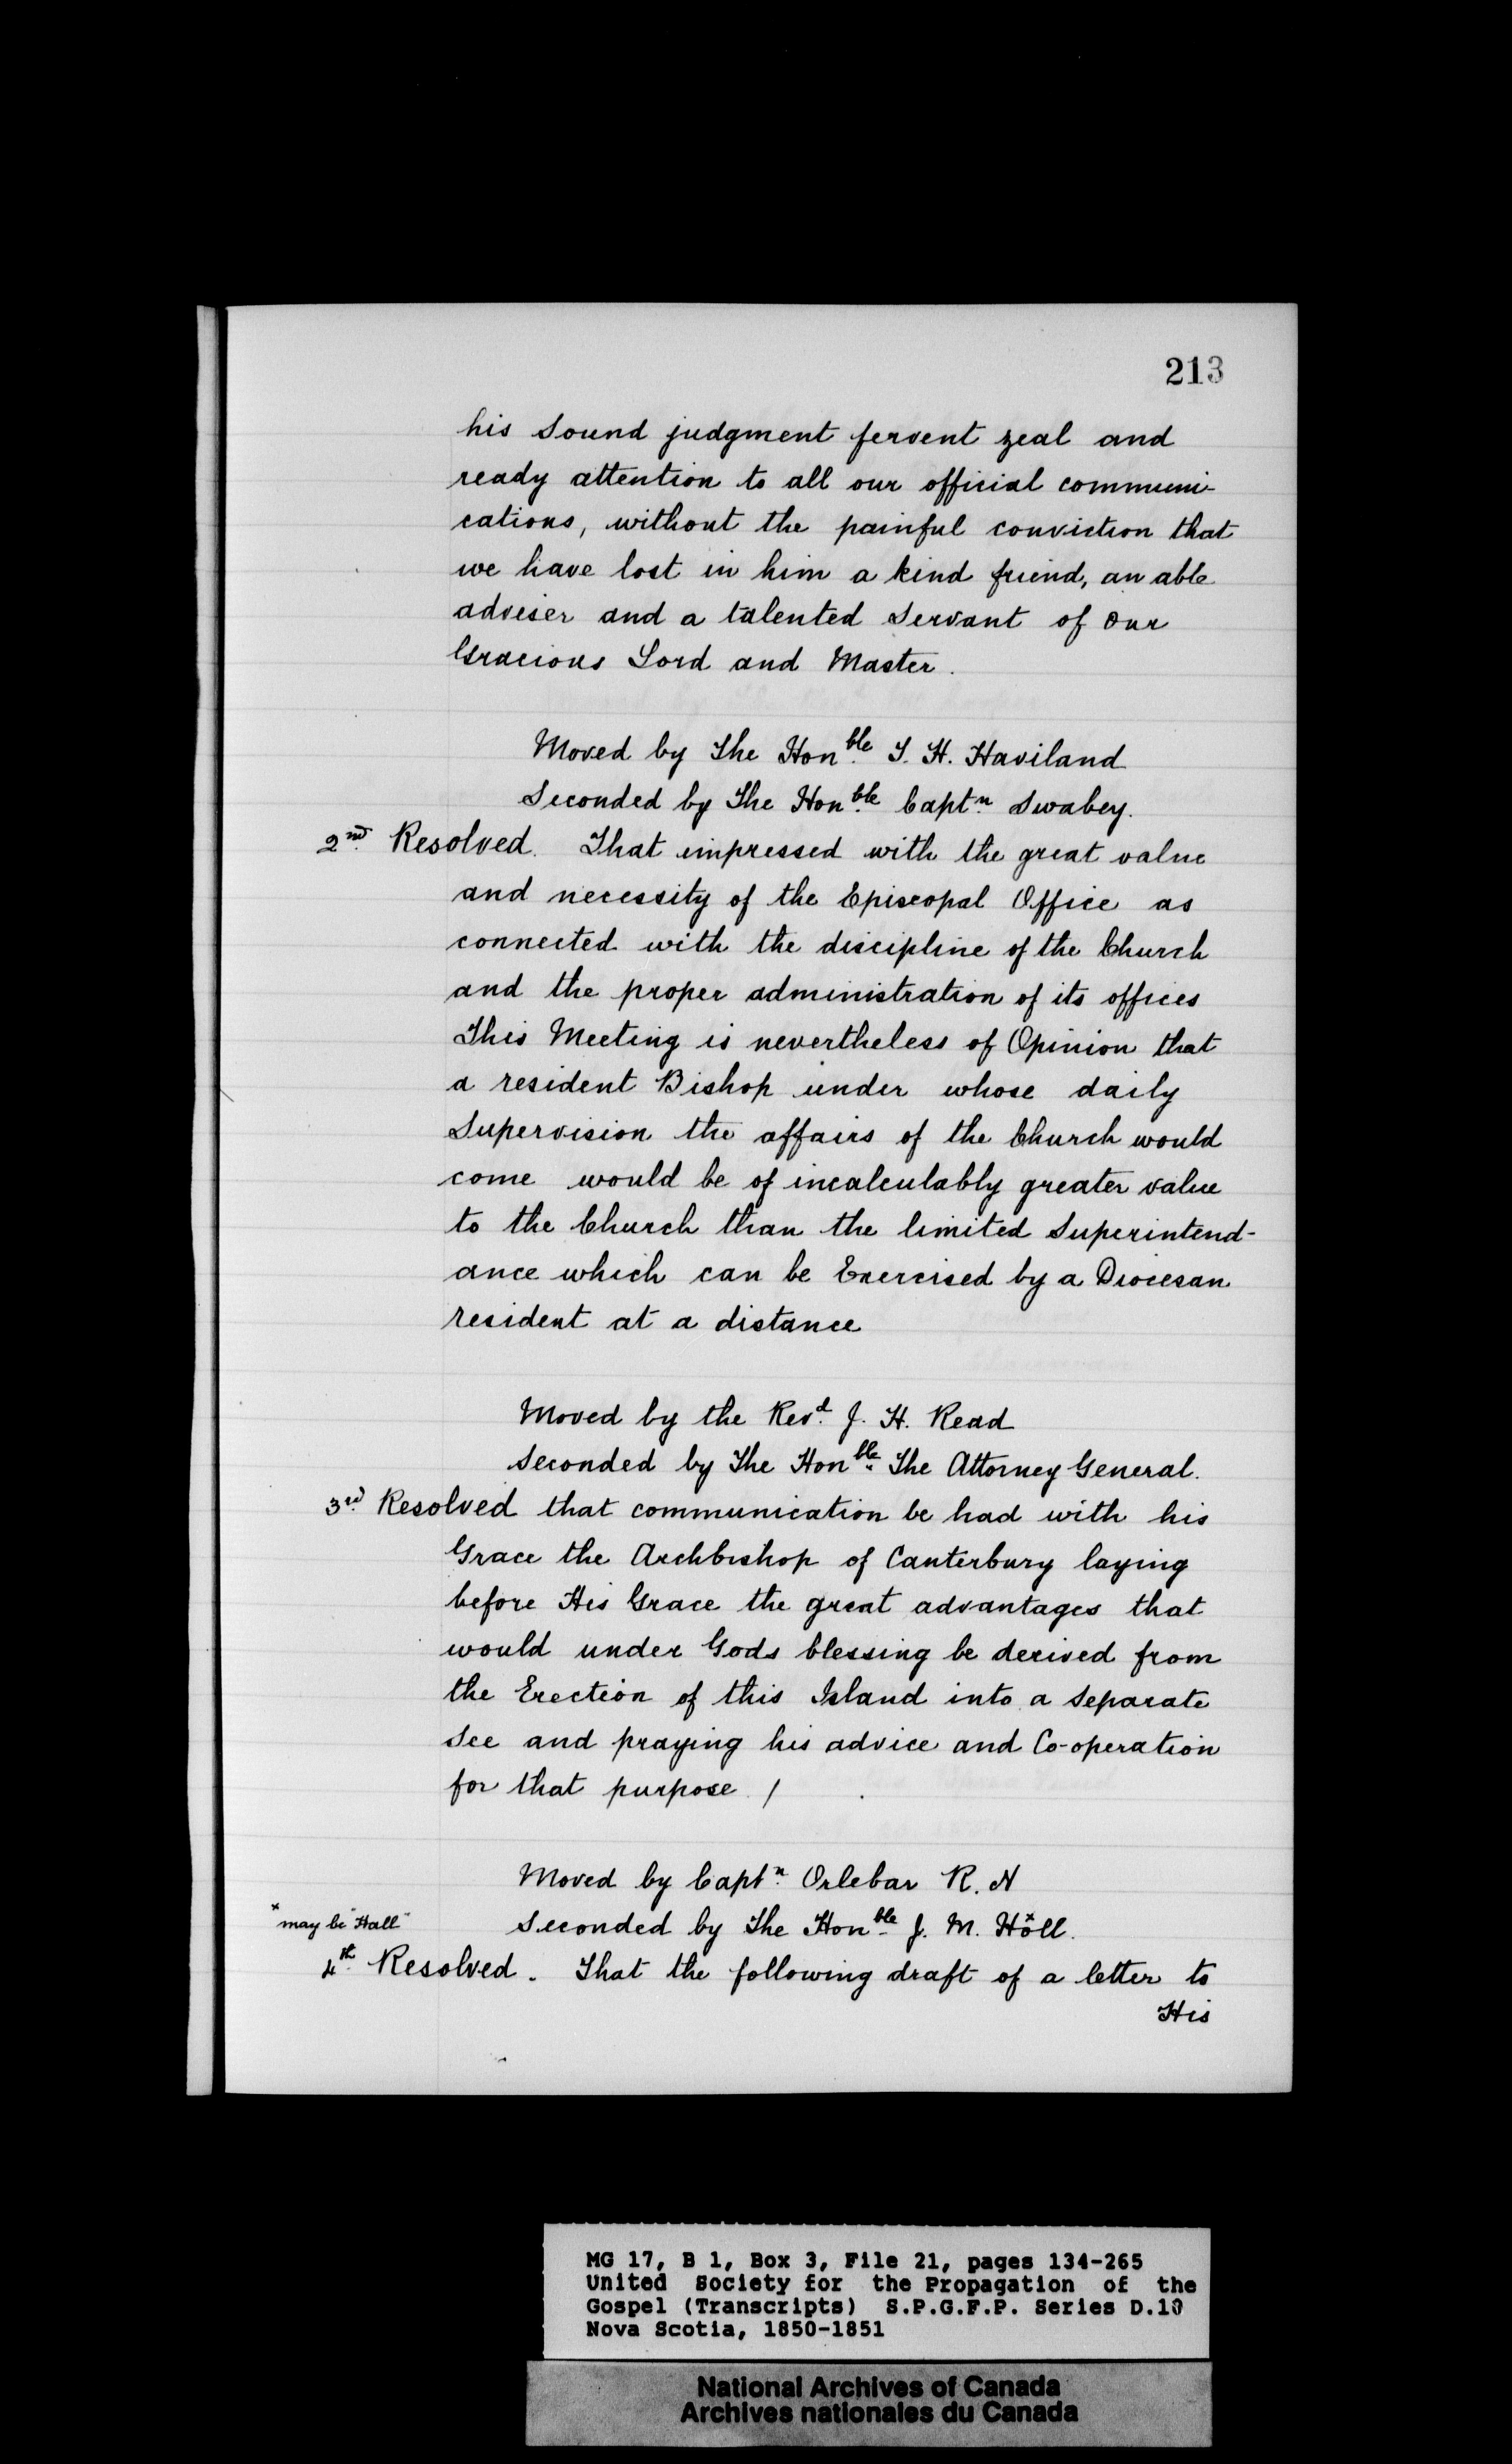 213
his Sound judgment fervent zeal and
ready attention to all our official communi-
cations, without the painful conviction that
we have lost in him a kind friend, an able
adviser and a talented Servant of Our
Gracious Lord and Master.
Moved by The Honble T. H. Haviland
Seconded by The Honble Captn Swabey.
2nd Resolved. That impressed with the great value
and necessity of the Episcopal Office as
connected with the discipline of the Church
and the proper administration of its offices
This Meeting is nevertheless of Opinion that
a resident Bishop under whose daily
Supervision the affairs of the Church would
come would be of incalculably greater value
to the Church than the limited Superintend-
ance which can be Exercised by a Diocesan
resident at a distance
Moved by the Revd J. H. Read
Seconded by The Honble The Attorney General.
3rd Resolved that communication be had with his
Grace the Archbishop of Canterbury laying
before His Grace the great advantages that
would under Gods blessing be derived from
the Erection of this Island into a Separate
See and praying his advice and Co-operation
for that purpose. /
Moved by Captn Orlebar R. N
x may be "Hall"
Seconded by The Honble J. M. Holl x.
4th Resolved. That the following draft of a letter to
His
MG 17, B 1, Box 3, File 21, pages 134-265
United Society for the Propagation of the
Gospel (Transcripts) S.P.G.F.P. Series D.10
Nova Scotia, 1850-1851
National Archives of Canada
Archives nationales du Canada